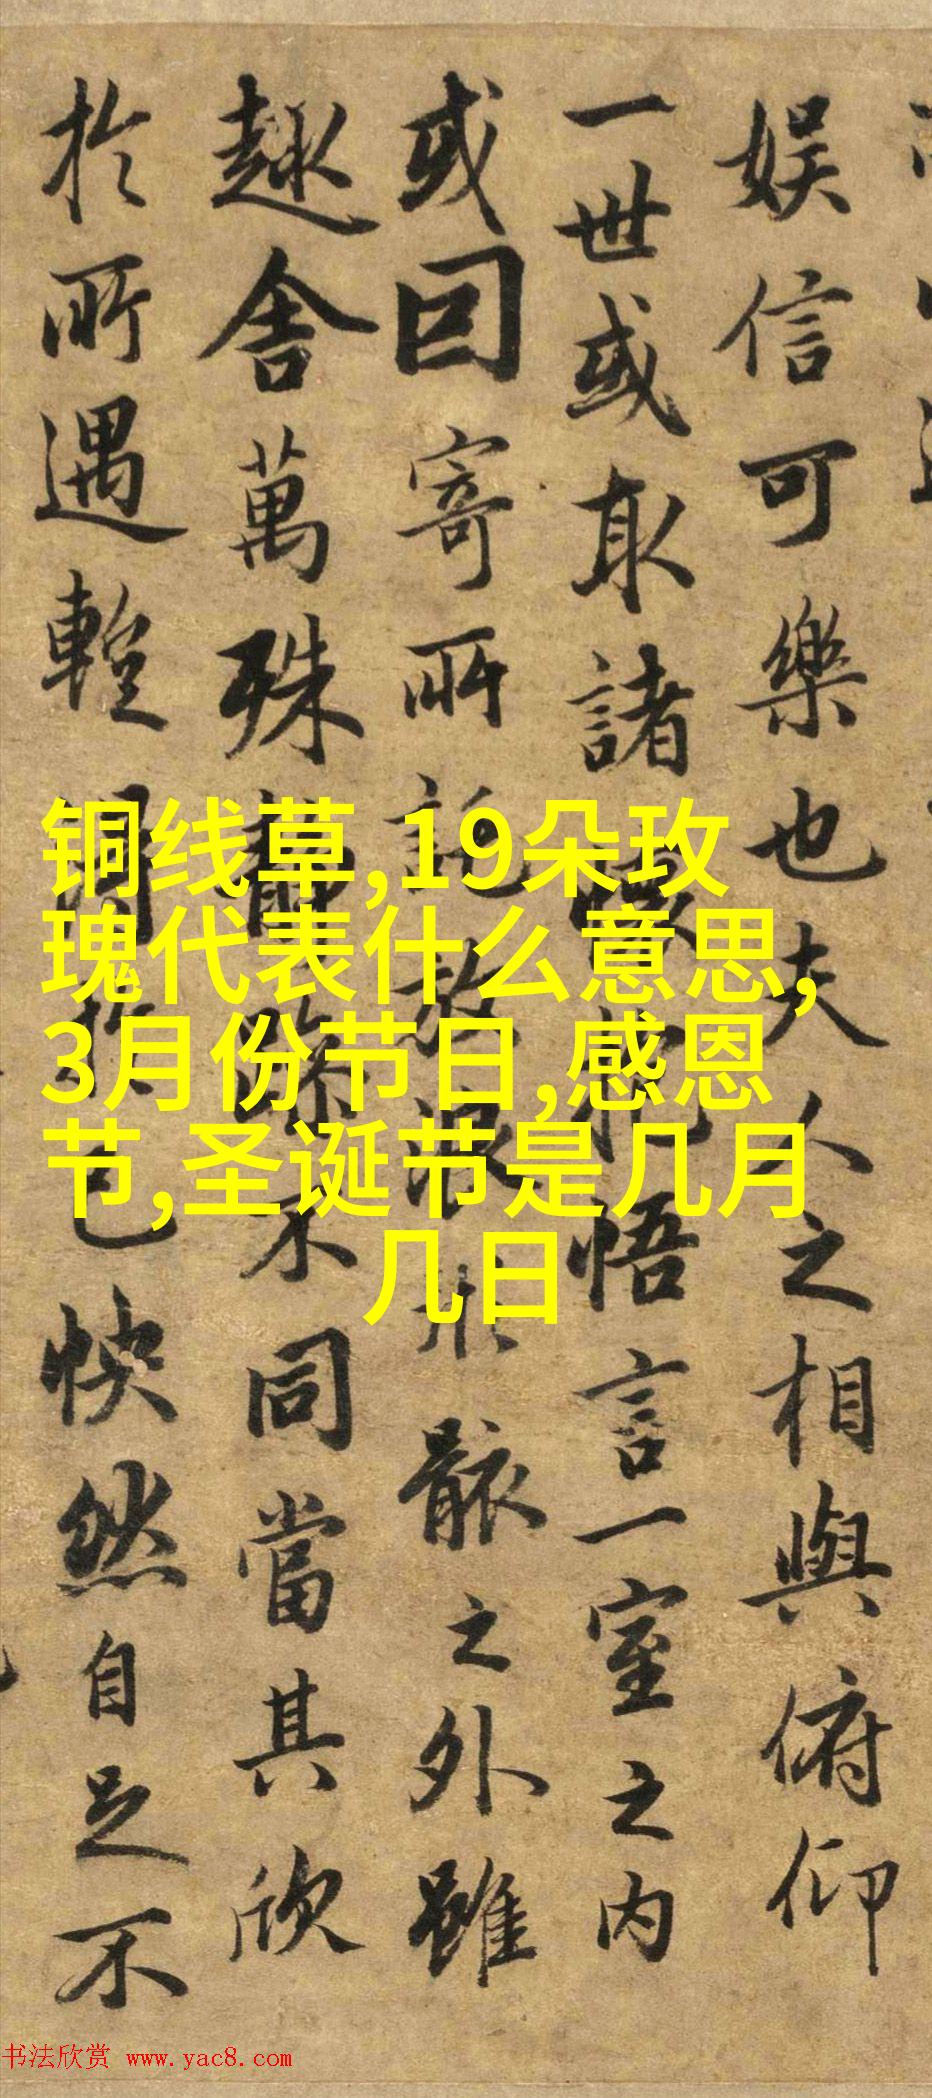 娱信可樂也夫人之相與俯仰
一世或取諸懷抱悟言一室之内
或囙寄所託放浪形骸之外雖
趣舍萬殊靜躁不同當其欣
扵所遇己快然自足不
铜线草,19朵玫
瑰代表什么意思,
3月份节日,感恩
节,圣诞节是几月
几日
书法欣赏 www.yac8.com